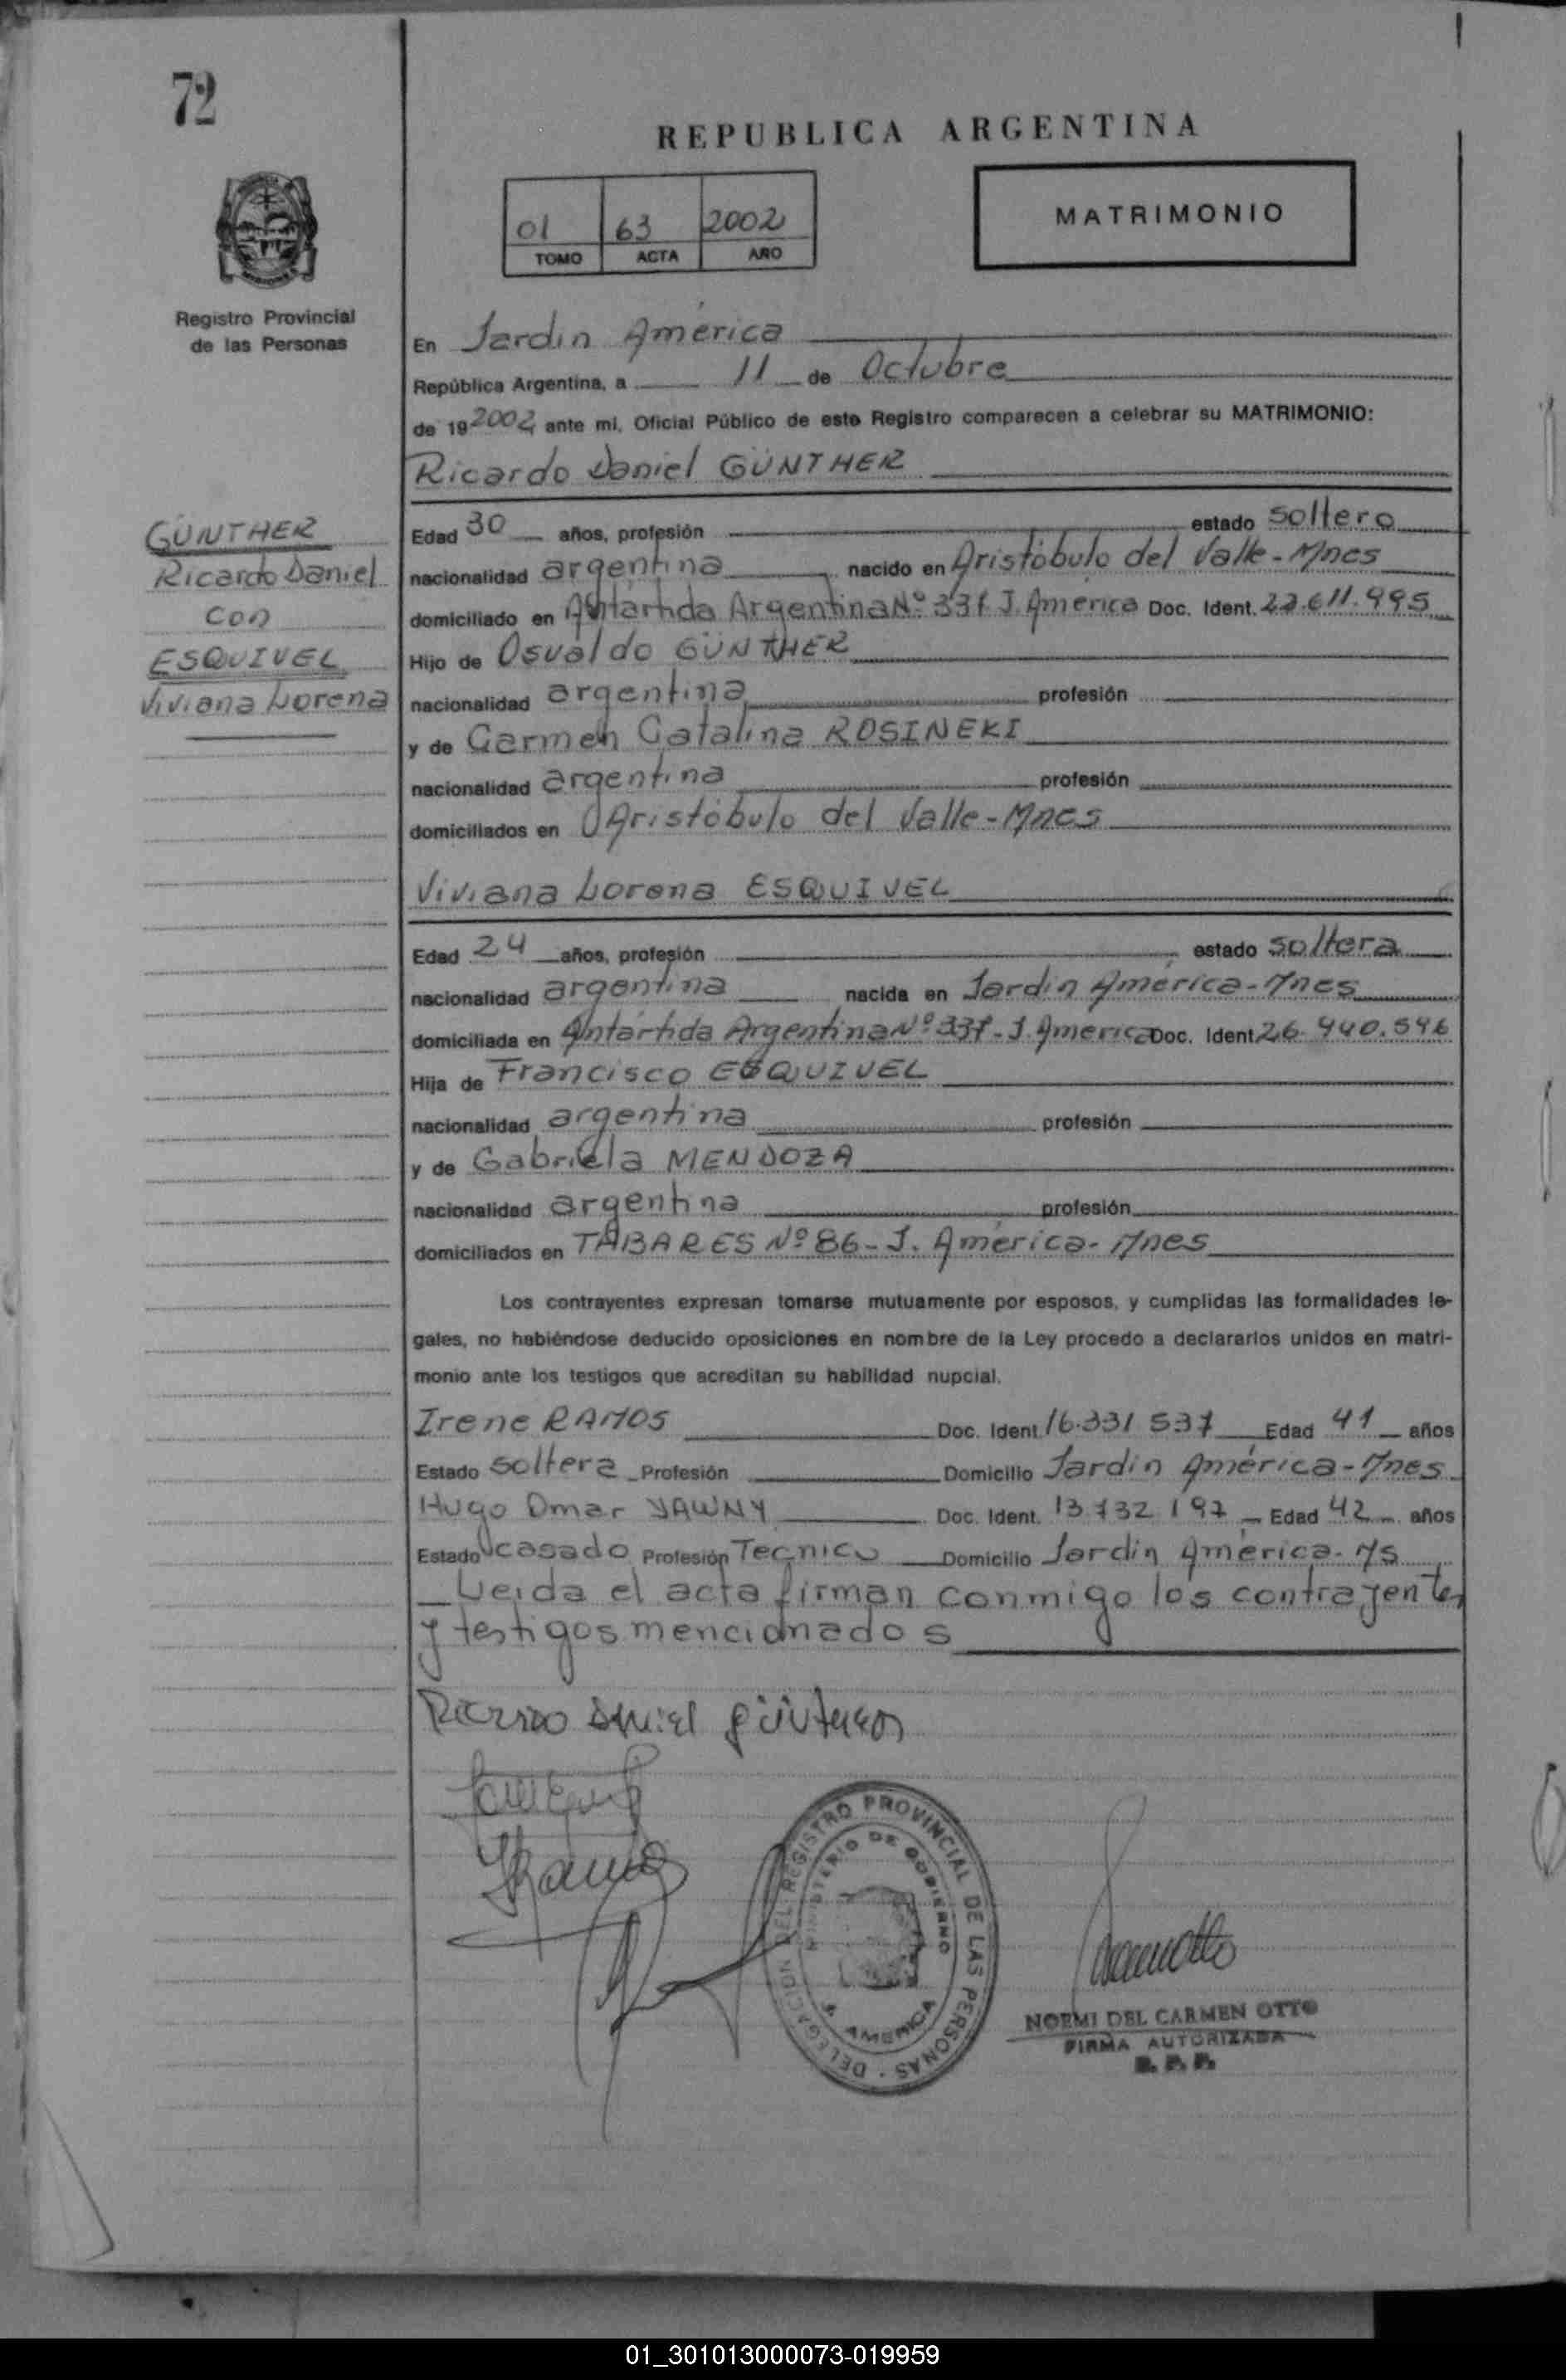 72
REPUBLICA ARGENTINA
01 63 2002
TOMO ACTA AÑO
MATRIMONIO
Registro Provincial
de las Personas
En Jardin América
República Argentina, a 11 de Octubre
de 192002 ante mi, Oficial Público de este Registro comparecen a celebrar su MATRIMONIO:
Ricardo Daniel GÜNTHER
GÜNTHER
Ricardo Daniel
con
ESQUIVEL
Viviana Lorena
Edad 30 años, profesión estado soltero
nacionalidad argentina nacido en Aristóbulo del Valle-Mnes
domiciliado en Antártida Argentina Nº 337 J. América Doc. Ident. 22.611.995
Hijo de Osvaldo GÜNTHER
nacionalidad argentina profesión
y de Carmen Catalina ROSINEKI
nacionalidad argentina profesión
domiciliados en Aristóbulo del Valle-Mnes
Viviana Lorena ESQUIVEL
Edad 24 años, profesión estado soltera
nacionalidad argentina nacida en Jardin América-Mnes
domiciliada en Antártida Argentina Nº 337-J. América Doc. Ident. 26.940.546
Hija de Francisco ESQUIVEL
nacionalidad argentina profesión
y de Gabriela MENDOZA
nacionalidad argentina profesión
domiciliados en TABARES Nº 86-J. América-Mnes
Los contrayentes expresan tomarse mutuamente por esposos, y cumplidas las formalidades le-
gales, no habiéndose deducido oposiciones en nombre de la Ley procedo a declararlos unidos en matri-
monio ante los testigos que acreditan su habilidad nupcial.
Irene RAMOS Doc. Ident. 16.331 537 Edad 41 años
Estado soltera Profesión Domicilio Jardin América-Mnes
Hugo Omar YAWNY Doc. Ident. 13 732 197 Edad 42 años
Estado casado Profesión Tecnico Domicilio Jardin América-Ms
Leida el acta firman conmigo los contrayentes
y testigos mencionados
Ricardo Daniel Günther
DELEGACION DEL REGISTRO PROVINCIAL DE LAS PERSONAS
MINISTERIO DE GOBIERNO
J. AMERICA
NOEMI DEL CARMEN OTTO
FIRMA AUTORIZADA
R. P. P.
01_301013000073-019959